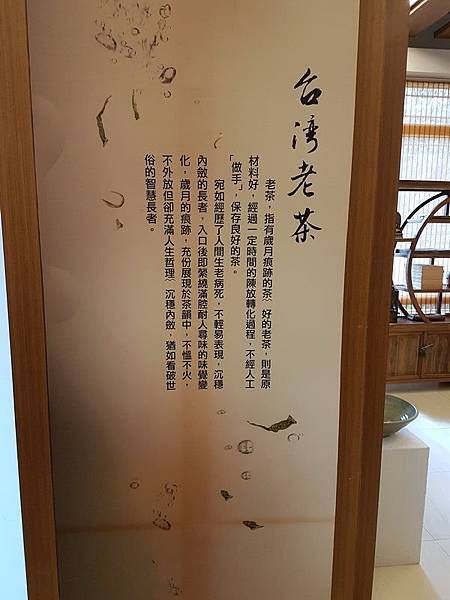 台湾老茶
老茶，指有歲月痕跡的茶﹔好的老茶，則是原
材料好，經過一定時間的陳放轉化過程，不經人工
「做手」，保存良好的茶。
宛如經歷了人間生老病死，不輕易表現，沉穩
內斂的長者，入口後即縈繞滿腔耐人尋味的味覺變
化，歲月的痕跡，充份展現於茶韻中，不慍不火，
不外放但卻充滿人生哲理﹔沉穩內斂，猶如看破世
俗的智慧長者。